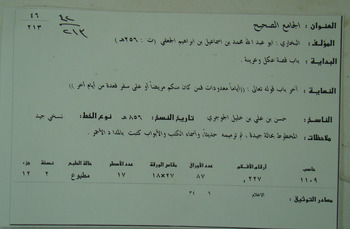 ٤٦
٢١٣
٤٦
٢١٣
العنوان : الجامع الصحيح
المؤلف : البخاري : ابو عبد الله محمد بن اسماعيل بن ابراهيم الجعفي (ت : ٢٥٦هـ)
البداية : باب قصة عكل وعرينة .
النهاية : آخر باب قوله تعالى : ((اياماً معدودات فمن كان منكم مريضاً أو على سفر فعدة من أيام آخر))
الناسخ : حسن بن علي بن خليل الجوجري تاريخ النسخ : ٨٥٦هـ نوع الخط: نسخي جيد
ملاحظات : المخطوط بحالة جيدة ، تم ترميمه حديثاً، وأسماء الكتب والأبواب كتبت بالمداد الأحمر.
خاص أرقام الأفلام عدد الأوراق مقاس الورقة عدد الأسطر حالة الطبع نسخة جزء
١١٠٩ ٢٢٧, ٨٧ ٢٧×١٨ ١٧ مطبوع ٢ ١٢
الاعلام ٦ ٣٤
مصادر التوثيق :